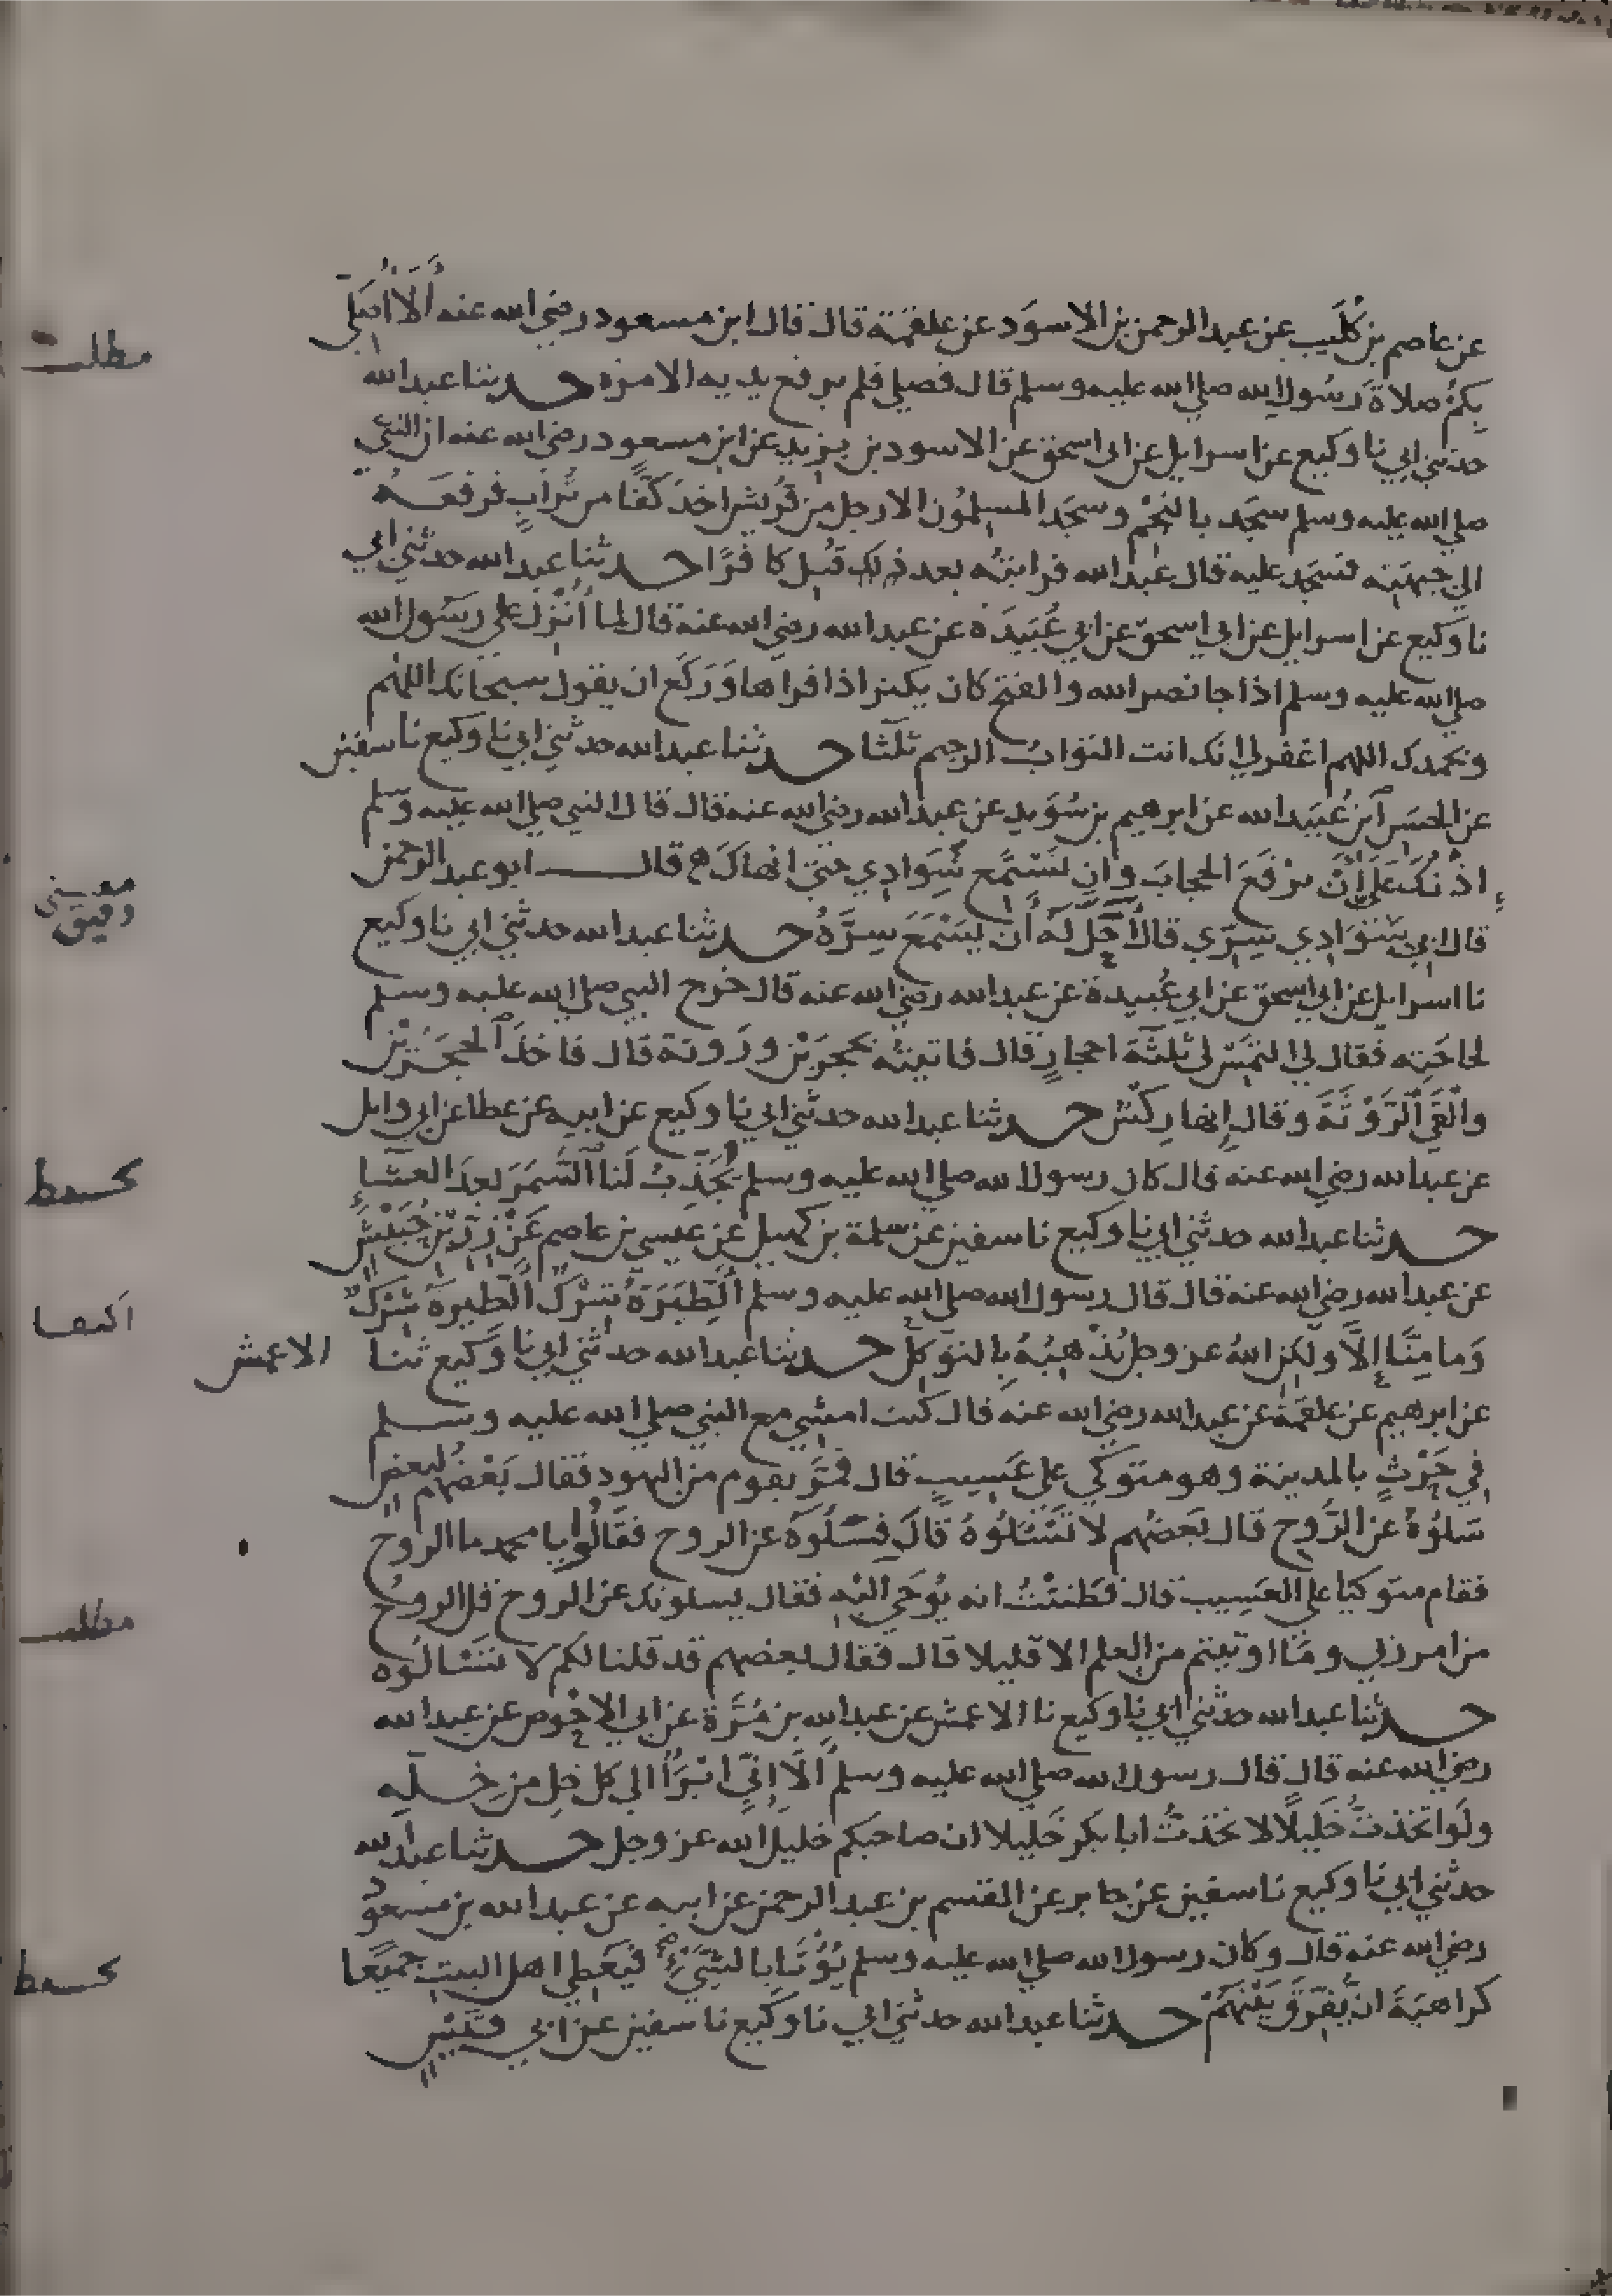 عن عاصم بن كُلَيب عن عبد الرحمن بن الاسوَد عن علقمة قال قال ابن مسعود رضي الله عنه ألا أُصَلِّي
بكمُ صلاةَ رسُول الله صلي الله عليه وسلم قال فصلي فلم يرفع يديه الا مرة حدثنا عبد الله
حدثني ابي نا وكيع عن اسرايل عن ابي اسحق عن الاسود بن يزيد عن ابن مسعود رضي الله عنه ان النبي
صلي الله عليه وسلم سجَد بالنجْم وسجَد المسلمُون الا رجل من قُريش اخذ كَفًّا من تُرابٍ فرفعَهُ
الي جبهته فسجد عليه قال عبد الله فرايتُه بعد ذلك قُتِل كافرًا حدثنا عبد الله حدثني ابي
نا وكيع عن اسرايل عن ابي اسحق عن ابي عُبَيدَة عن عبد الله رضي الله عنه قال لما أُنزِل علي رسُول الله
صلي الله عليه وسلم اذا جا نصر الله والفتح كان يكثر اذا قراها وَرَكَع ان يقول سبحانك اللهم
وبحمدك اللهم اغفر لي انك انت التوابُ الرحيم ثلثا حدثنا عبد الله حدثني ابي نا وكيع نا سفين
عن الحسَن بْن عُبَيد الله عن ابرهيم بن سُوَيد عن عبد الله رضي الله عنه قال قال النبي صلي الله عليه وسلم
اذْنُكَ عَلَيَّ أَنْ ترْفَعَ الحجابَ وان تَسْتَمِع سِوَادِي حتي انهاكَ قال ابو عبد الرحمن
قال ابي سِوَادِي سِرِّي قال أَحَلَّ لَه أن يَسْمَعَ سِرَّهُ حدثنا عبد الله حدثني ابي نا وكيع
نا اسرايل عن ابي اسحق عن ابي عُبيدة عن عبد الله رضي الله عنه قال خرج النبي صلي الله عليه وسلم
لحاجَتِه فقال لي التمِسْ لي ثلثة احجارٍ قال فاتيتُه بحجرَيْن ورَوثة قال فاخذَ الحجَرَيْن
والْقَي الرَّوْثَةَ وقال إنها رِكْسٌ حدثنا عبد الله حدثني ابي نا وكيع عن ابيه عن عطا عن ابي وايل
عن عبد الله رضي الله عنه قال كان رسول الله صلي الله عليه وسلم يُجَذِّبُ لَنا السَّمَرَ بعدَ العشاءِ
حدثنا عبد الله حدثني ابي نا وكيع نا سفين عن سلمة بن كهيل عن عيسي بن عاصم عَنْ زِرِّ بْن حُبَيْشٍ
عن عبد الله رضي الله عنه قال قال رسول الله صلي الله عليه وسلم الطِّيَرَةُ شرْكٌ الطيرةُ شِرْكٌ
وَما مِنَّا إلَّا ولكن اللهُ عز وجل يُذْهِبُهُ بالتوَكل حدثنا عبد الله حدثني ابي نا وكيع ثنا الاعمش
عن ابرهيم عن علقمة عن عبد الله رضي الله عنه قال كنت امشي مع النبي صلي الله عليه وسلم
في حَرْثٍ بالمدينة وهو متوكي علي عَسِيبٍ قال فمَرَّ بقوم من اليهود فقال بَعْضُهم لبعضٍ
سَلوُهُ عن الرُّوح قال بَعضُهم لا تَسْئَلُوهُ قالَ فسَئلُوهُ عن الروح فقَالُوا يا محمد ما الروح
فقام متوكيا علي العسِيب قال فظننْتُ انه يُوحَي اليْه فقال يسلونك عن الروح قل الروحُ
من امر ربي ومَا اوتيتم من العلم الا قليلا قال فقال بعضهم قد قلنا لكم لا تَسْالُوه
حدثنا عبد الله حدثني ابي نا وكيع نا الاعمش عن عبد الله بن مُرَّة عن ابي الاحْوص عن عبد الله
رضي الله عنه قال قال رسول الله صلي الله عليه وسلم ألَا إنِّي ابْرَأُ الي كل خِلٍ من خِلَّتِه
ولَو اتخذتُ خَلِيلًا لاتخذتُ ابا بكر خَليلا ان صاحبكم خليلُ الله عز وجل حدثنا عبد الله
حدثني ابي نا وكيع نا سفين عن جابر عن القسم بن عبد الرحمن عن ابيه عن عبد الله بن مسعود
رضي الله عنه قال وكان رسول الله صلي الله عليه وسلم يُؤْتَا بالسَّبْيِ فيُعطِي اهل البيت جميعًا
كراهيَةَ ان يُفرِّقَ بَيْنَهمْ حدثنا عبد الله حدثني ابي نا وكيع نا سفين عن ابي قيسٍ
مطلب
معني
دقيق
اكتفا
مطلب